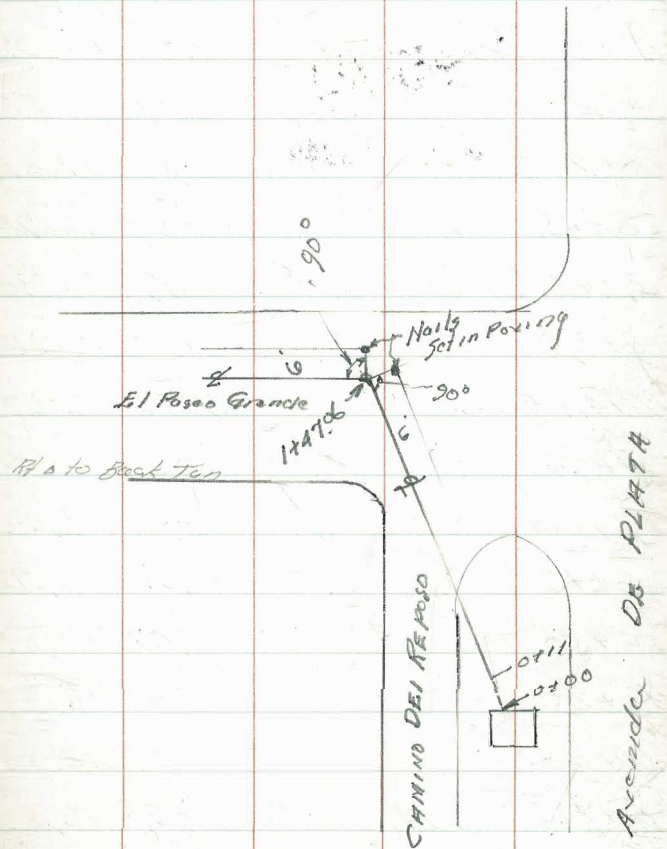 90°
Nails
Set in Paving
6'
El Paseo Grande
90°
1+47.06
6'
Rt Δ to Back Tan
CAMINO DEL REPOSO
Avenida DE PLATA
0+11
0+00